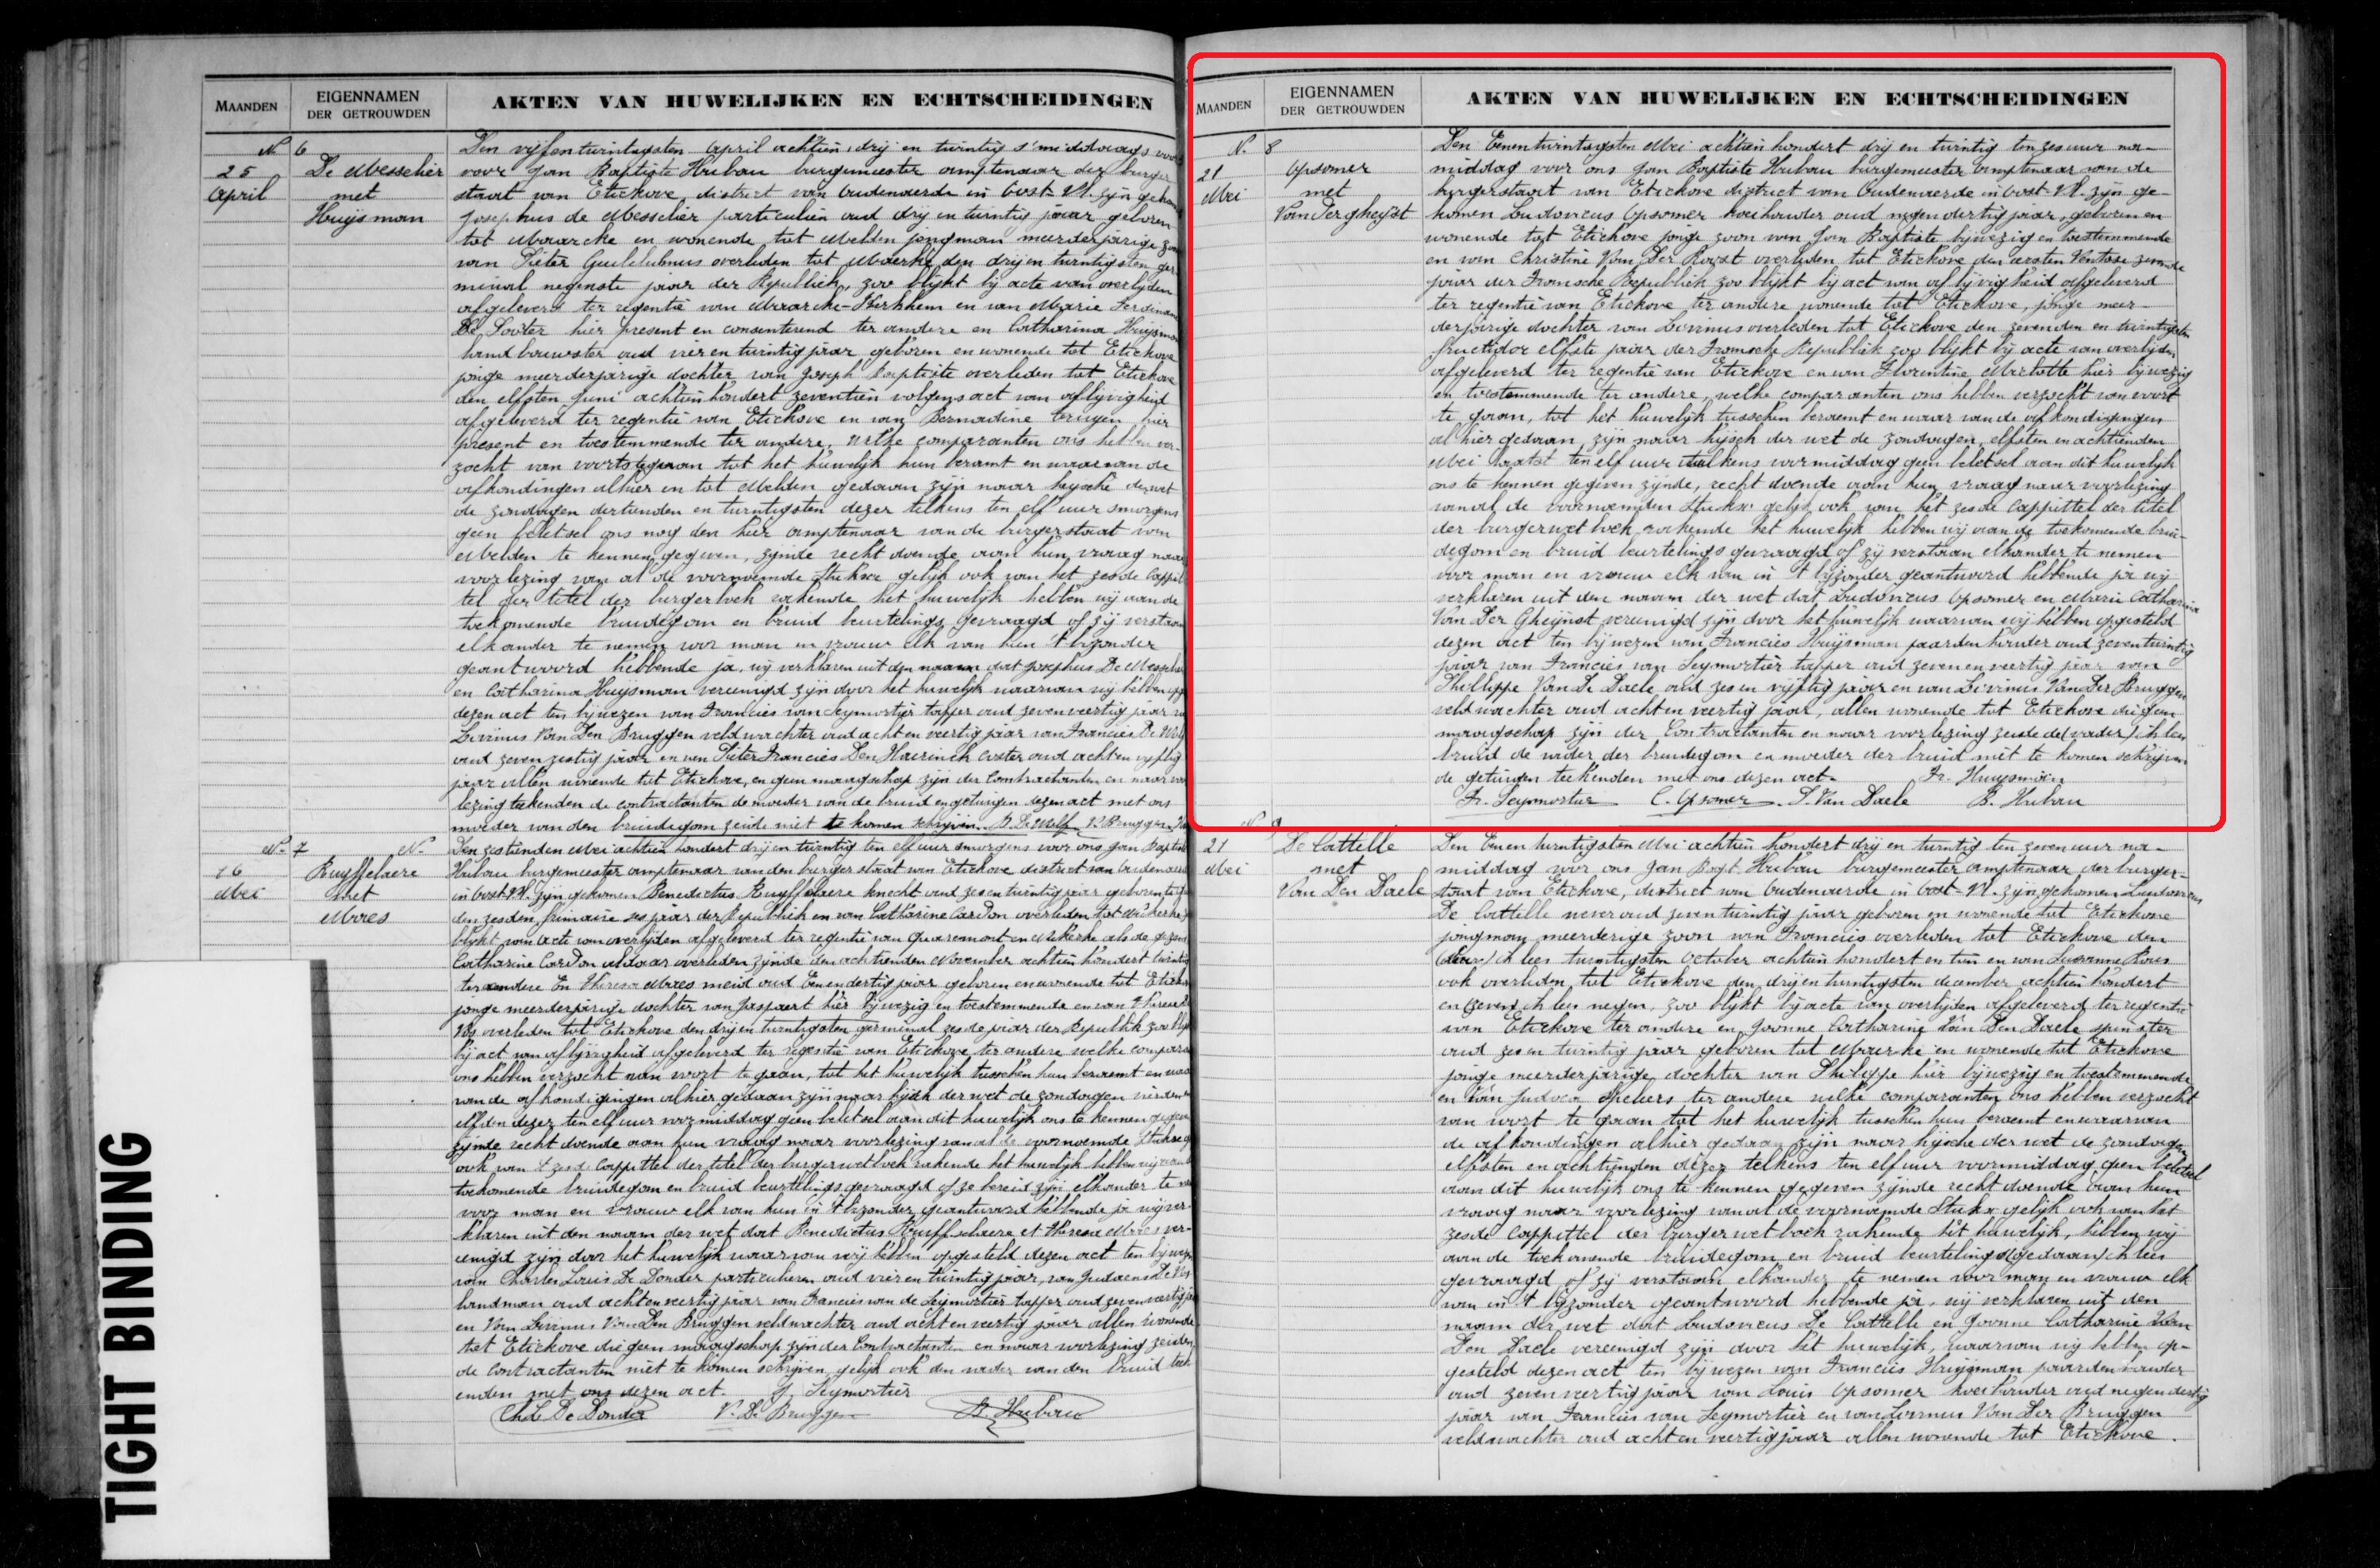 MAANDEN
EIGENNAMEN
DER GETROUWDEN
AKTEN VAN HUWELIJKEN EN ECHTSCHEIDINGEN
N. 6
25
April
De Messchier
met
Huijsman
Den vijfentwintugsten April achtien drij en twintig s'middags voor
voor Jan Baptiste Hubau burgemeester amptenaar der burger
staat van Etichove district van Oudenaerde in Oost-Vl. zijn gekomen
Josephus de Messchier particulier oud drij en twintig jaar geboren
tot Maarcke en wonende tot Melden jongman meerderjarige zoon
van Pieter overleden tot Maerke den drij en twintigsten ger
minal negenste jaar der Republiek, zoo blijkt bij acte van overlijden
afgelevert ter regentie van Maarcke-Kerkhem en van Marie
hier present en consenterend ter andere en Catharina Huijsman
landbouwster oud vier en twintig jaar geboren en wonende tot Etichove
jonge meerderjarige dochter van Joseph Baptiste overleden tot Etichove
den elfsten Juni achtien hondert zeventien volgens act van aflijvigheid
afgeleverd ter regentie van Etichove en van Bernadine hier
present en toestemmende ter andere, welke comparanten ons hebben ver-
zocht van voorts tegaan tot het huwelijk hun beramt en waarvan de
afkondingen alhier en tot Melden gedaan zijn naar heysche der wet
de zondagen dertienden en twintigsten dezer telkens ten elf uur smorgens
geen beletsel ons nog den hier amptenaar van de burgerstaat van
Melden te kennen gegeven, zynde recht doende aan hun vraag naar
voorlezing van al de voornoemde stukken gelijk ook van het zesde Cappit
tel der titel der burgerboek rakende het huwelijk hebben wij aan de
toekomende bruidegom en bruid beurtelings gevraagd of zij verstaan
elkander te nemen voor man en vrouw elk van hun 't bijzonder
geantwoord hebbende ja. wij verklaren uit den naam dat Josephus De Messchier
en Catharina Huijsman vereenigd zijn door het huwelijk waarvan wij hebben opge
dezen act ten bijwezen van Francies van Leymortier tapper oud zevenveertig jaar van
Livinus Van Den Bruggen veldwachter oud acht en veertig jaar van Francies De Wolf
oud zeven zestig jaar en van Pieter Francies Den Haerinck coster oud achten vyftig
jaar allen wonende tot Etichove, en geen maagschap zijn der Contractanten en naar voor
lezing teekenden de contractanten de moeder van de bruid en getuigen dezen act met ons
moeder van den bruidegom zeide niet te konen schrijven. B. De Wolf V. Bruggen
N. 7
N.
16
Mei
Ruyffelaere
met
Maes
Den zestienden Mei achtien hondert drij en twintig ten elf uur smorgens voor ons Jan Baptiste
Hubau burgemeester amptenaar van den burger staat van Etichove district van Oudenaerde
in Oost-Vl. Zijn gekomen Benedictus Ruyffelaere knecht oud zes en twintig jaar geboren te
den zesden frimaire ses jaar der Republiek en van Catharine Cardon overleden tot
blijkt van acte van overlijden afgeleverd ter regentie van Quaremont en als de
Catharine Cardon aldaar overleden zijnde den achtienden November achtien hondert twintig
ter andere En Theresia Maes meid oud Eenendertig jaar geboren en wonende tot Etichove
jonge meerderjarige dochter van Jaspaert hier bijwezig en toestemmende en van
Vos overleden tot Etichove den drij en twintigsten germinal zesde jaar der Republik zoo blijkt
bij act van aflijvigheid afgeleverd ter regentie van Etichove ter andere welke comparan
ons hebben verzocht van voort te gaan, tot het huwelijk tusschen hun beraemt en waar
van de afkondigingen alhier gedaan zijn naar hijsch der wet de zondagen vierden en
elfden dezer ten elf uur voormiddag geen beletsel aan dit huwelijk ons te kennen gegeven
zijnde recht doende aan hun vraag naar voorlezing van al de voornoemde stuken
ook van 't zesde Cappittel der titel der burgerwetboek rakende het huwelijk hebben wij aan de
toekomende bruidegom en bruid beurtelings gevraagd of ze bereid zijn elkander te ne
voor man en vrouw elk van hun in 't bizonder geantwoord hebbende ja wij ver-
klaren uit den naam der wet dat Benedictus Ruyffelaere et Theresia Maes ver-
eenigd zijn door het huwelijk waarvan wij hebben opgesteld dezen act ten bijwezen
van Charles Louis De Donder particulieren oud vier en twintig jaar, van Judocus De Vos
landman oud achtenveertig jaar van Francies van de Leymortier tapper oud zevenveertig jaar
en Van Livinus Van Den Bruggen veldwachter oud acht en veertig jaar allen wonende
tot Etichove die geen maagschap zijn der Contractanten en naar voorlezing zeiden
de contractanten niet te konen schrijven, gelijk ook den vader van den bruid teek
enden met ons dezen act. J. Leymortier
Ch. L. De Donder V. D. Bruggen B. Hubau
MAANDEN
EIGENNAMEN
DER GETROUWDEN
AKTEN VAN HUWELIJKEN EN ECHTSCHEIDINGEN
N. 8
21
Mei
Opsomer
met
Van Der gheijst
Den Eenentwintugsten Mei achtien hondert drij en twintig ten zes uur na-
middag voor ons Jan Baptiste Hubau burgemeester amptenaar van de
burgerstaat van Etichove district van Oudenaerde in Oost-Vl. zijn ge-
komen Ludovicus Opsomer koeihouder oud negendertig jaar, geboren en
wonende tot Etichove jonge zoon van Jan Baptiste bijwezig en toestemmende
en van Christine Van Der overleden tot Etichove den eersten Ventose zevende
jaar der Fransche Republiek zoo blijkt bij act van aflijvigheid afgeleverd
ter regentie van Etichove ter andere wonende tot Etichove, jonge meer-
derjarige dochter van Livinus overleden tot Etichove den zevenden en twintigsten
fructidor elfste jaar der Fransche Republiek zoo blijkt bij acte van overlijden
afgeleverd ter regentie van Etichove en van Florentine hier bijwezig
en toestemmende ter andere, welke comparanten ons hebben verzocht van voort
te gaan, tot het huwelijk tusschen beraemt en waar van de afkondigingen
alhier gedaan, zijn naar hijsch der wet de zondagen, elfsten en achtienden
Mei laatst ten elf uur telkens voormiddag geen beletsel aan dit huwelijk
ons te kennen gegeven zijnde, recht doende aan hun vraag naar voorlezing
van al de voornoemden stuks gelijk ook van het zesde Cappittel der titel
der burgerwetboek rakende het huwelijk hebben wij aan de toekomende brui-
degom en bruid beurtelings gevraagd of zij verstaan elkander te nemen
voor man en vrouw elk van in 't bijzonder geantwoord hebbende ja wij
verklaren uit den naam der wet dat Ludovicus Opsomer en Marie Catharina
Van Der Gheijnst vereenigd zijn door het huwelijk waarvan wij hebben opgesteld
dezen act ten bijwezen van Francies Huijsman paarden houder oud zeventwintig
jaar van Francies van Leymortier tapper oud zevenenveertig jaar van
Philippe Van De Daele oud zes en vijftig jaar en van Livinus Van Der Bruggen
veldwachter oud achten veertig jaar, allen wonende tot Etichove die geen
maagschap zijn der Contractanten en naar voorlezing zeide de (vader)
bruid de vader der bruidegom en moeder der bruid niet te konen schrijven
de getuigen teekenden met ons dezen act. Fr. Huysman
Fr. Leymortier C. Opsomer. P. Van Daele B. Hubau
N. 9
21
Mei
De Cattelle
met
Van Den Daele
Den Eenen twintigsten Mei achtien hondert drij en twintig ten zeven uur na-
middag voor ons Jan Bapt. Hubau burgemeester amptenaar der burger-
staat van Etichove, district van Oudenaerde in Oost-Vl. zijn gekomen Ludovicus
De Cattelle wever oud zeventwintig jaar geboren en wonende tot Etichove
jongman meerderige zoon van Francies overleden tot Etichove den
lees twintigsten October achtien hondert en tien en van Susanne
ook overleden tot Etichove den drijentwintigsten december achtien hondert
en zeven lees negen, zoo blijkt bij acte van overlijden afgeleverd ter regentie
van Etichove ter andere en Joanne Catharine Van Den Daele spinster
oud zes en twintig jaar geboren tot Maercke en wonende tot Etichove
jonge meerderjarige dochter van Philippe hier bijwezig en toestemmende
en van Judoca Speliers ter andere welke comparanten ons hebben verzocht
van voort te gaan tot het huwelijk tusschen hun beraemt en waarvan
de afkondingen alhier gedaan zijn naar hijsche der wet de zondagen
elfsten en achtienden dezer telkens ten elf uur voormiddag geen beletsel
aan dit huwelijk ons te kennen gegeven zijnde recht doende aan hun
vraag naar voorlezing van al de voornoemde stuks gelijk ook van het
zesde Cappittel der burgerwetboek rakende het huwelijk, hebben wij
aan de toekomende bruidegom en bruid beurtelings (gedaan) lees
gevraagd of zij verstaan elkander te nemen voor man en vrouw elk
van in 't bijzonder geantwoord hebbende ja, wij verklaren uit den
naam der wet dat Ludovicus De Cattelle en Joanne Catharine Van
Den Daele vereenigd zijn door het huwelijk, waarvan wij hebben op-
gesteld dezen act ten bijwezen van Francies Huijsman paarden houder
oud zevenveertig jaar van Louis Opsomer koeihouder oud negendertig
jaar van Francies van Leymortier en van Livinus Van Der Bruggen
veldwachter oud acht en veertig jaar allen wonende tot Etichove.
TIGHT BINDING